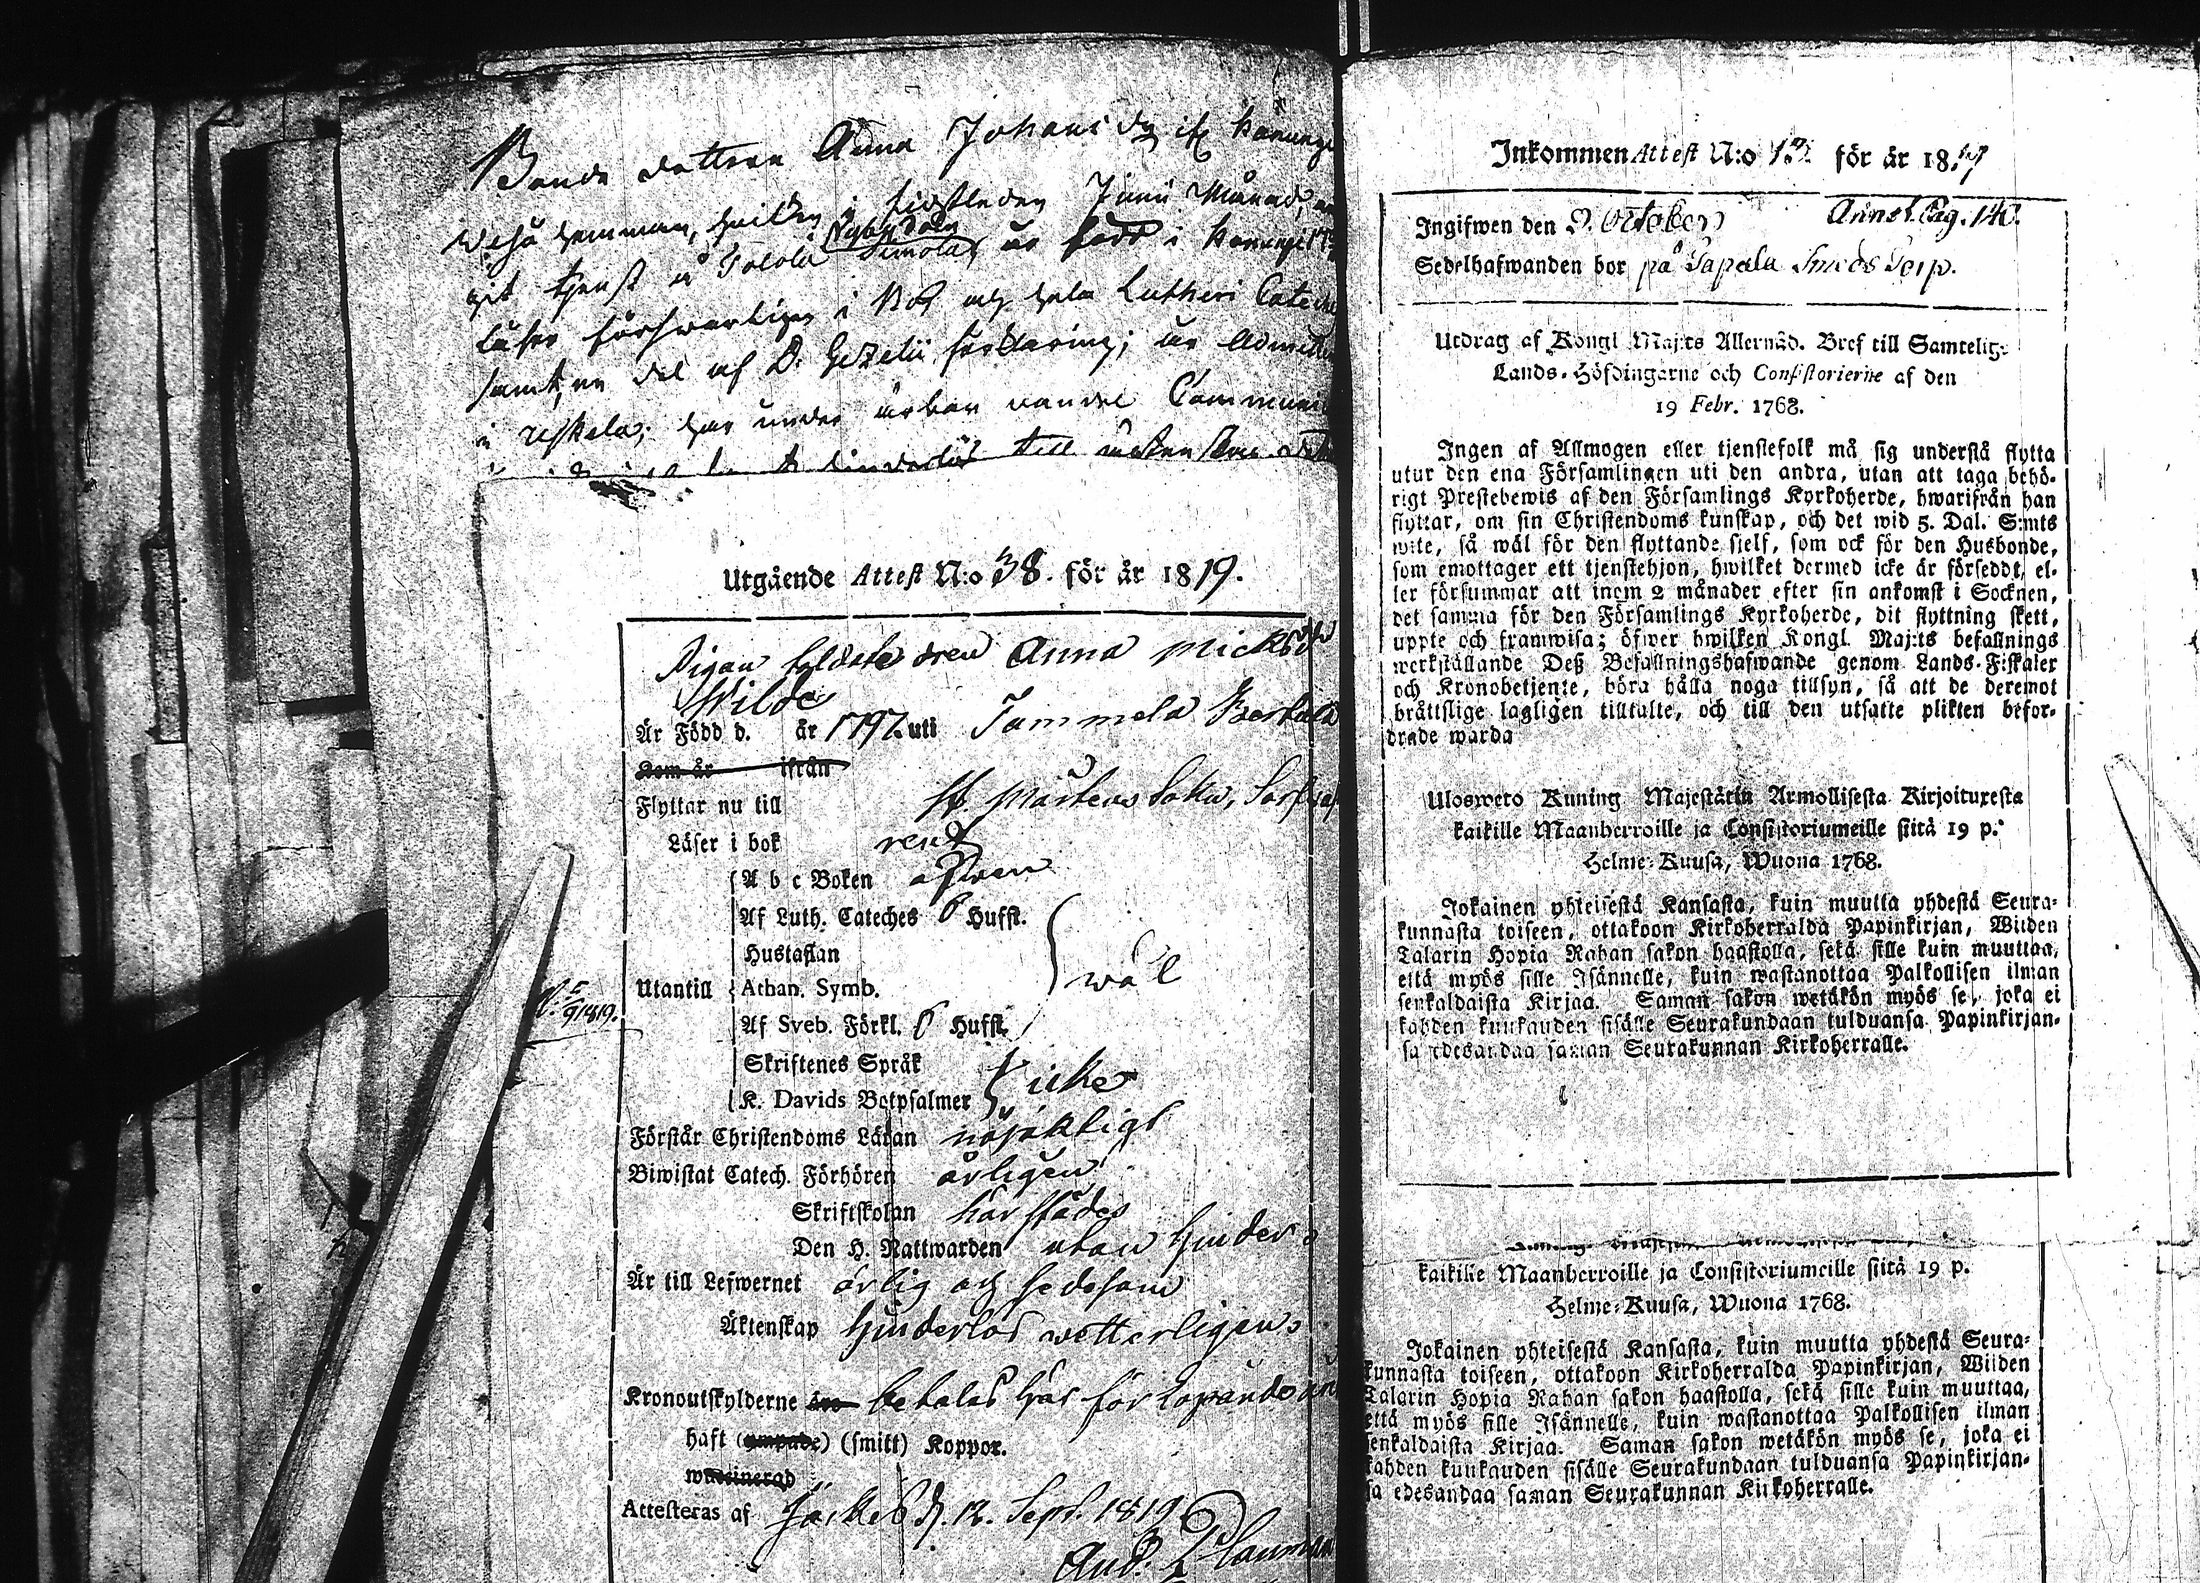 Bonde dottren Anna Johansdr
hemman, hvilken i sistleden Junii Månad,
tjenst å Simola är född i
läser försvarligen i Bok och hela Lutheri
samt en del af D. Gezelii förklaring; är
i har under ärbar vandel
till
Utgående Attest N:o 38. för år 1819.
Pigan Anna
Wilde
Är Född d. år 1797. uti Tammela
Kom år ifrån
Flyttar nu till St Mårtens Sokn,
Läser i bok rent
A b c Boken äfwen
Af Luth. Cateches 6 Hufst.
Hustaflan
Utantill Athan. Symb. wäl
Af Sveb. Förkl. 6 Hufst.
Skriftenes Språk
K. Davids Botpsalmer icke
Förstår Christendoms Läran nöjaktigt
Biwistat Catech. Förhören årligen
Skriftskolan härstädes
Den H. Nattwarden utan hinder
Är till Lefwernet ärlig och sedesam
Äktenskap hinderlös wetterligen
Kronoutskylderne äro betalas här för löpande
haft (ympade) (smitt) Koppor.
waccinerad
Attesteras af d. 12. Sept. 1819
And.
Inkommen Attest N:o för år 18
Ingifwen den 2 October Annot. Pag. 140.
Sedelhafwanden bor på Tapala Smeds Torp.
Utdrag af Kongl Maj:ts Allernåd. Bref till Samtelig.
Lands-Höfdingarne och Consistorierne af den
19 Febr. 1768.
Ingen af Allmogen eller tjenstefolk må sig understå flytta
utur den ena Församlingen uti den andra, utan att taga behö-
rigt Prestebewis af den Församlings Kyrkoherde, hwarifrån han
flyttar, om sin Christendoms kunskap, och det wid 5. Dal. S:mts
wite, så wäl för den flyttande sjelf, som ock för den Husbonde,
som emottager ett tjenstehjon, hwilket dermed icke är försedt, el-
ler försummar att inom 2 månader efter sin ankomst i Socknen,
det samma för den Församlings Kyrkoherde, dit flyttning skett,
uppte och framwisa; öfwer hwilken Kongl. Maj:ts befallnings
werkställande Deß Befallningshafwande genom Lands-Fiskaler
och Kronobetjente, böra hålla noga tillsyn, så att de deremot
bråttslige lagligen tilltalte, och till den utsatte plikten befor-
drade warda
Ulosweto Kuning Majestätin Armollisesta Kirjoituxesta
kaikille Maanherroille ja Consistoriumeille siitä 19 p.
Helme-Kuusa, Wuona 1768.
Jokainen yhteisestä Kansasta, kuin muutta yhdestä Seura-
kunnasta toiseen, ottakoon Kirkoherralda Papinkirjan, Wiiden
Talarin Hopia Rahan sakon haastolla, sekä sille kuin muuttaa,
että myös sille Isännelle, kuin wastanottaa Palkollisen ilman
senkaldaista Kirjaa. Saman sakon wetäkön myös se, joka ei
kahden kuukauden sisälle Seurakundaan tulduansa Papinkirjan-
sa edesandaa saman Seurakunnan Kirkoherralle.
kaikille Maanherroille ja Consistoriumeille siitä 19 p.
Helme-Kuusa, Wuona 1768.
Jokainen yhteisestä Kansasta, kuin muutta yhdestä Seura-
kunnasta toiseen, ottakoon Kirkoherralda Papinkirjan, Wiiden
Talarin Hopia Rahan sakon haastolla, sekä sille kuin muuttaa,
että myös sille Isännelle, kuin wastanottaa Palkollisen ilman
senkaldaista Kirjaa. Saman sakon wetäkön myös se, joka ei
kahden kuukauden sisälle Seurakundaan tulduansa Papinkirjan-
sa edesandaa saman Seurakunnan Kirkoherralle.